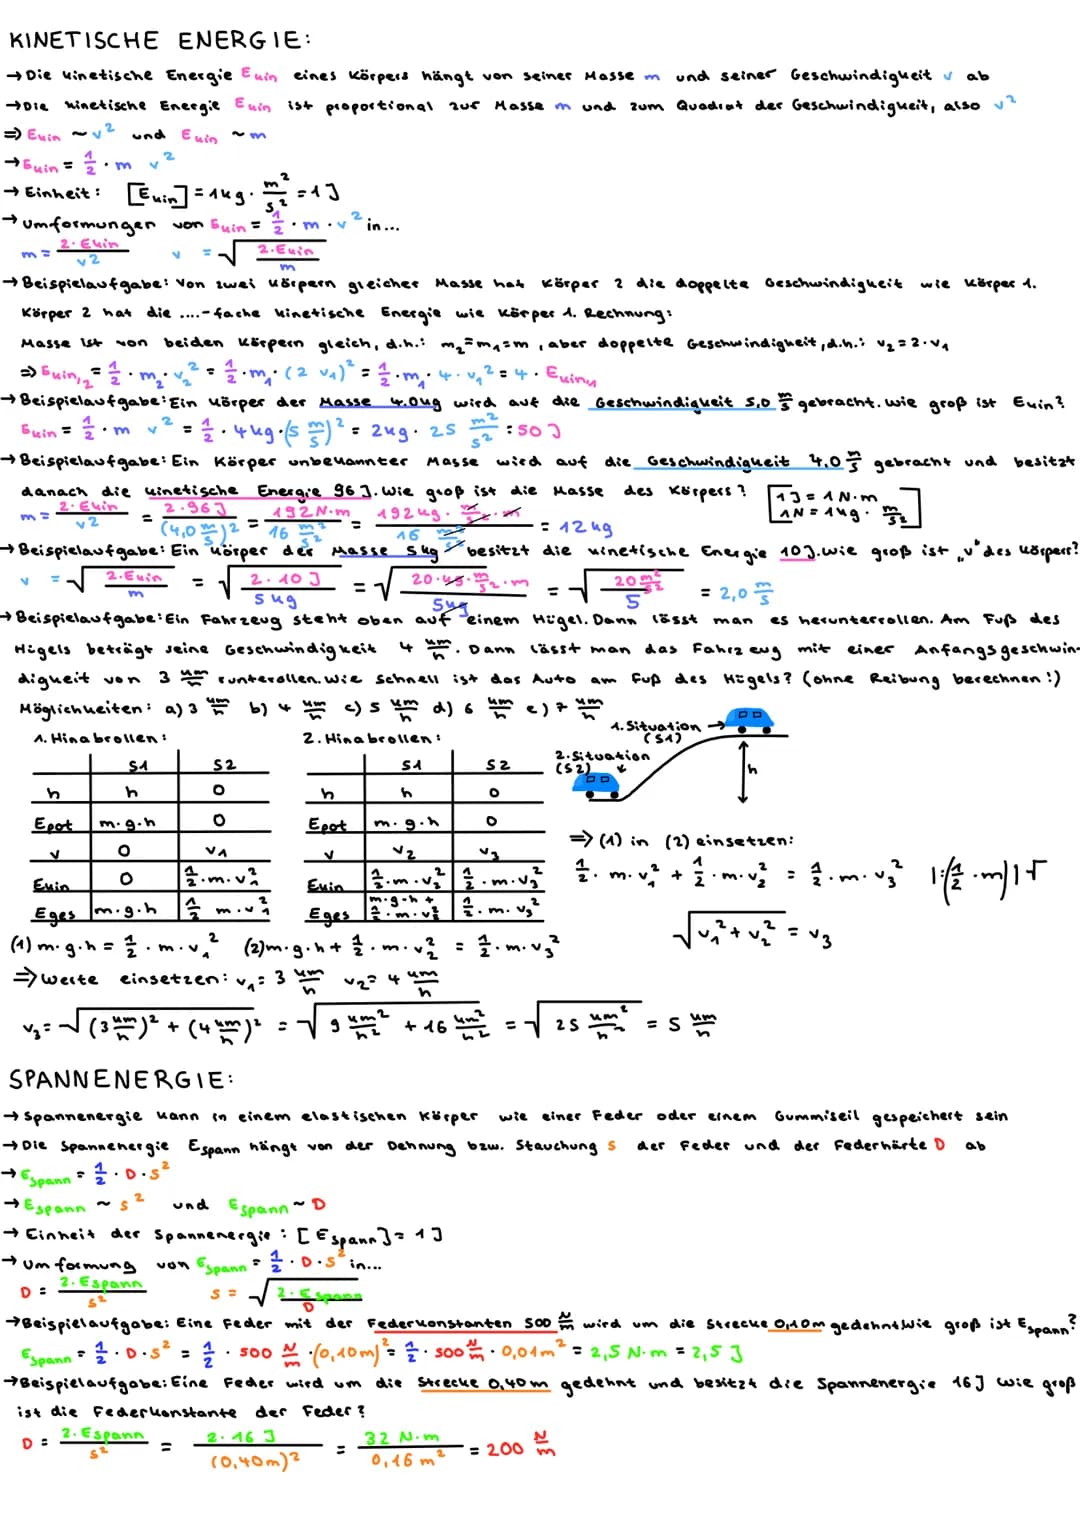 KINETISCHE ENERGIE:
→ Die kinetische Energie Ekin eines Körpers hängt von seiner Masse m und seiner Geschwindigkeit v ab
→ Die kinetische Energie Ekin ist proportional zur Masse m und zum Quadrat der Geschwindigkeit, also v²
⇒ Ekin ~ v² und Ekin ~ m
→ Ekin = 1/2 · m v²
→ Einheit: [Ekin] = 1kg · m²/s² = 1J
→ Umformungen von Ekin = 1/2 · m · v² in...
m = 2·Ekin/v² v = √(2·Ekin/m)
→ Beispielaufgabe: Von zwei Körpern gleicher Masse hat Körper 2 die doppelte Geschwindigkeit wie Körper 1.
Körper 2 hat die ....-fache kinetische Energie wie Körper 1. Rechnung:
Masse ist von beiden Körpern gleich, d.h.: m₂=m₁=m , aber doppelte Geschwindigkeit, d.h.: v₂ = 2·v₁
⇒ Ekin,2 = 1/2 · m₂ · v₂² = 1/2 · m₁ · (2 v₁)² = 1/2 · m₁ · 4 · v₁² = 4 · Ekin₁
→ Beispielaufgabe: Ein Körper der Masse 4.0kg wird auf die Geschwindigkeit 5,0 m/s gebracht. Wie groß ist Ekin?
Ekin = 1/2 · m v² = 1/2 · 4kg · (5 m/s)² = 2kg · 25 m²/s² = 50 J
→ Beispielaufgabe: Ein Körper unbekannter Masse wird auf die Geschwindigkeit 4,0 m/s gebracht und besitzt
danach die kinetische Energie 96 J. Wie groß ist die Masse des Körpers? [1J = 1N·m
1N = 1kg · m/s²]
m = 2·Ekin/v² = 2·96J/(4,0 m/s)² = 192N·m/16 m²/s² = 192kg · m/s² · m/16 m²/s² = 12kg
→ Beispielaufgabe: Ein Körper der Masse 5kg besitzt die kinetische Energie 10J. Wie groß ist „v" des Körpers?
v = √(2·Ekin/m) = √(2·10 J/5kg) = √(20·kg·m/s²·m/5kg) = √(20 m²/s²/5) = 2,0 m/s
→ Beispielaufgabe: Ein Fahrzeug steht oben auf einem Hügel. Dann lässt man es herunterrollen. Am Fuß des
Hügels beträgt seine Geschwindigkeit 4 km/h. Dann lässt man das Fahrzeug mit einer Anfangsgeschwin-
digkeit von 3 km/h runterollen. Wie schnell ist das Auto am Fuß des Hügels? (ohne Reibung berechnen!)
Möglichkeiten: a) 3 km/h b) 4 km/h c) 5 km/h d) 6 km/h e) 7 km/h
1. Situation → (S1)
2. Situation (S2)
h
1. Hinabrollen:
S1 S2
h h 0
Epot m·g·h 0
v 0 v₁
Ekin 0 1/2·m·v₁²
Eges m·g·h 1/2 m·v₁²
2. Hinabrollen:
S1 S2
h h 0
Epot m·g·h 0
v v₂ v₃
Ekin 1/2·m·v₂² 1/2·m·v₃²
Eges m·g·h + 1/2·m·v₂² 1/2·m·v₃²
⇒ (1) in (2) einsetzen:
1/2 · m · v₁² + 1/2 · m · v₂² = 1/2 · m · v₃² |:(1/2 · m)|√
√(v₁² + v₂²) = v₃
(1) m·g·h = 1/2 · m · v₁² (2) m·g·h + 1/2 · m · v₂² = 1/2 · m · v₃²
⇒ Werte einsetzen: v₁ = 3 km/h v₂ = 4 km/h
v₃ = √((3 km/h)² + (4 km/h)²) = √(9 km²/h² + 16 km²/h²) = √(25 km²/h²) = 5 km/h
SPANNENERGIE:
→ Spannenergie kann in einem elastischen Körper wie einer Feder oder einem Gummiseil gespeichert sein
→ Die Spannenergie Espann hängt von der Dehnung bzw. Stauchung s der Feder und der Federhärte D ab
→ Espann = 1/2 · D · s²
→ Espann ~ s² und Espann ~ D
→ Einheit der Spannenergie: [Espann] = 1 J
→ Umformung von Espann = 1/2 · D · s² in...
D = 2·Espann/s² s = √(2·Espann/D)
→ Beispielaufgabe: Eine Feder mit der Federkonstanten 500 N/m wird um die Strecke 0,10m gedehnt. Wie groß ist Espann?
Espann = 1/2 · D · s² = 1/2 · 500 N/m · (0,10m)² = 1/2 · 500 N/m · 0,01m² = 2,5 N·m = 2,5 J
→ Beispielaufgabe: Eine Feder wird um die Strecke 0,40m gedehnt und besitzt die Spannenergie 16J Wie groß
ist die Federkonstante der Feder?
D = 2·Espann/s² = 2·16 J/(0,40m)² = 32 N·m/0,16 m² = 200 N/m